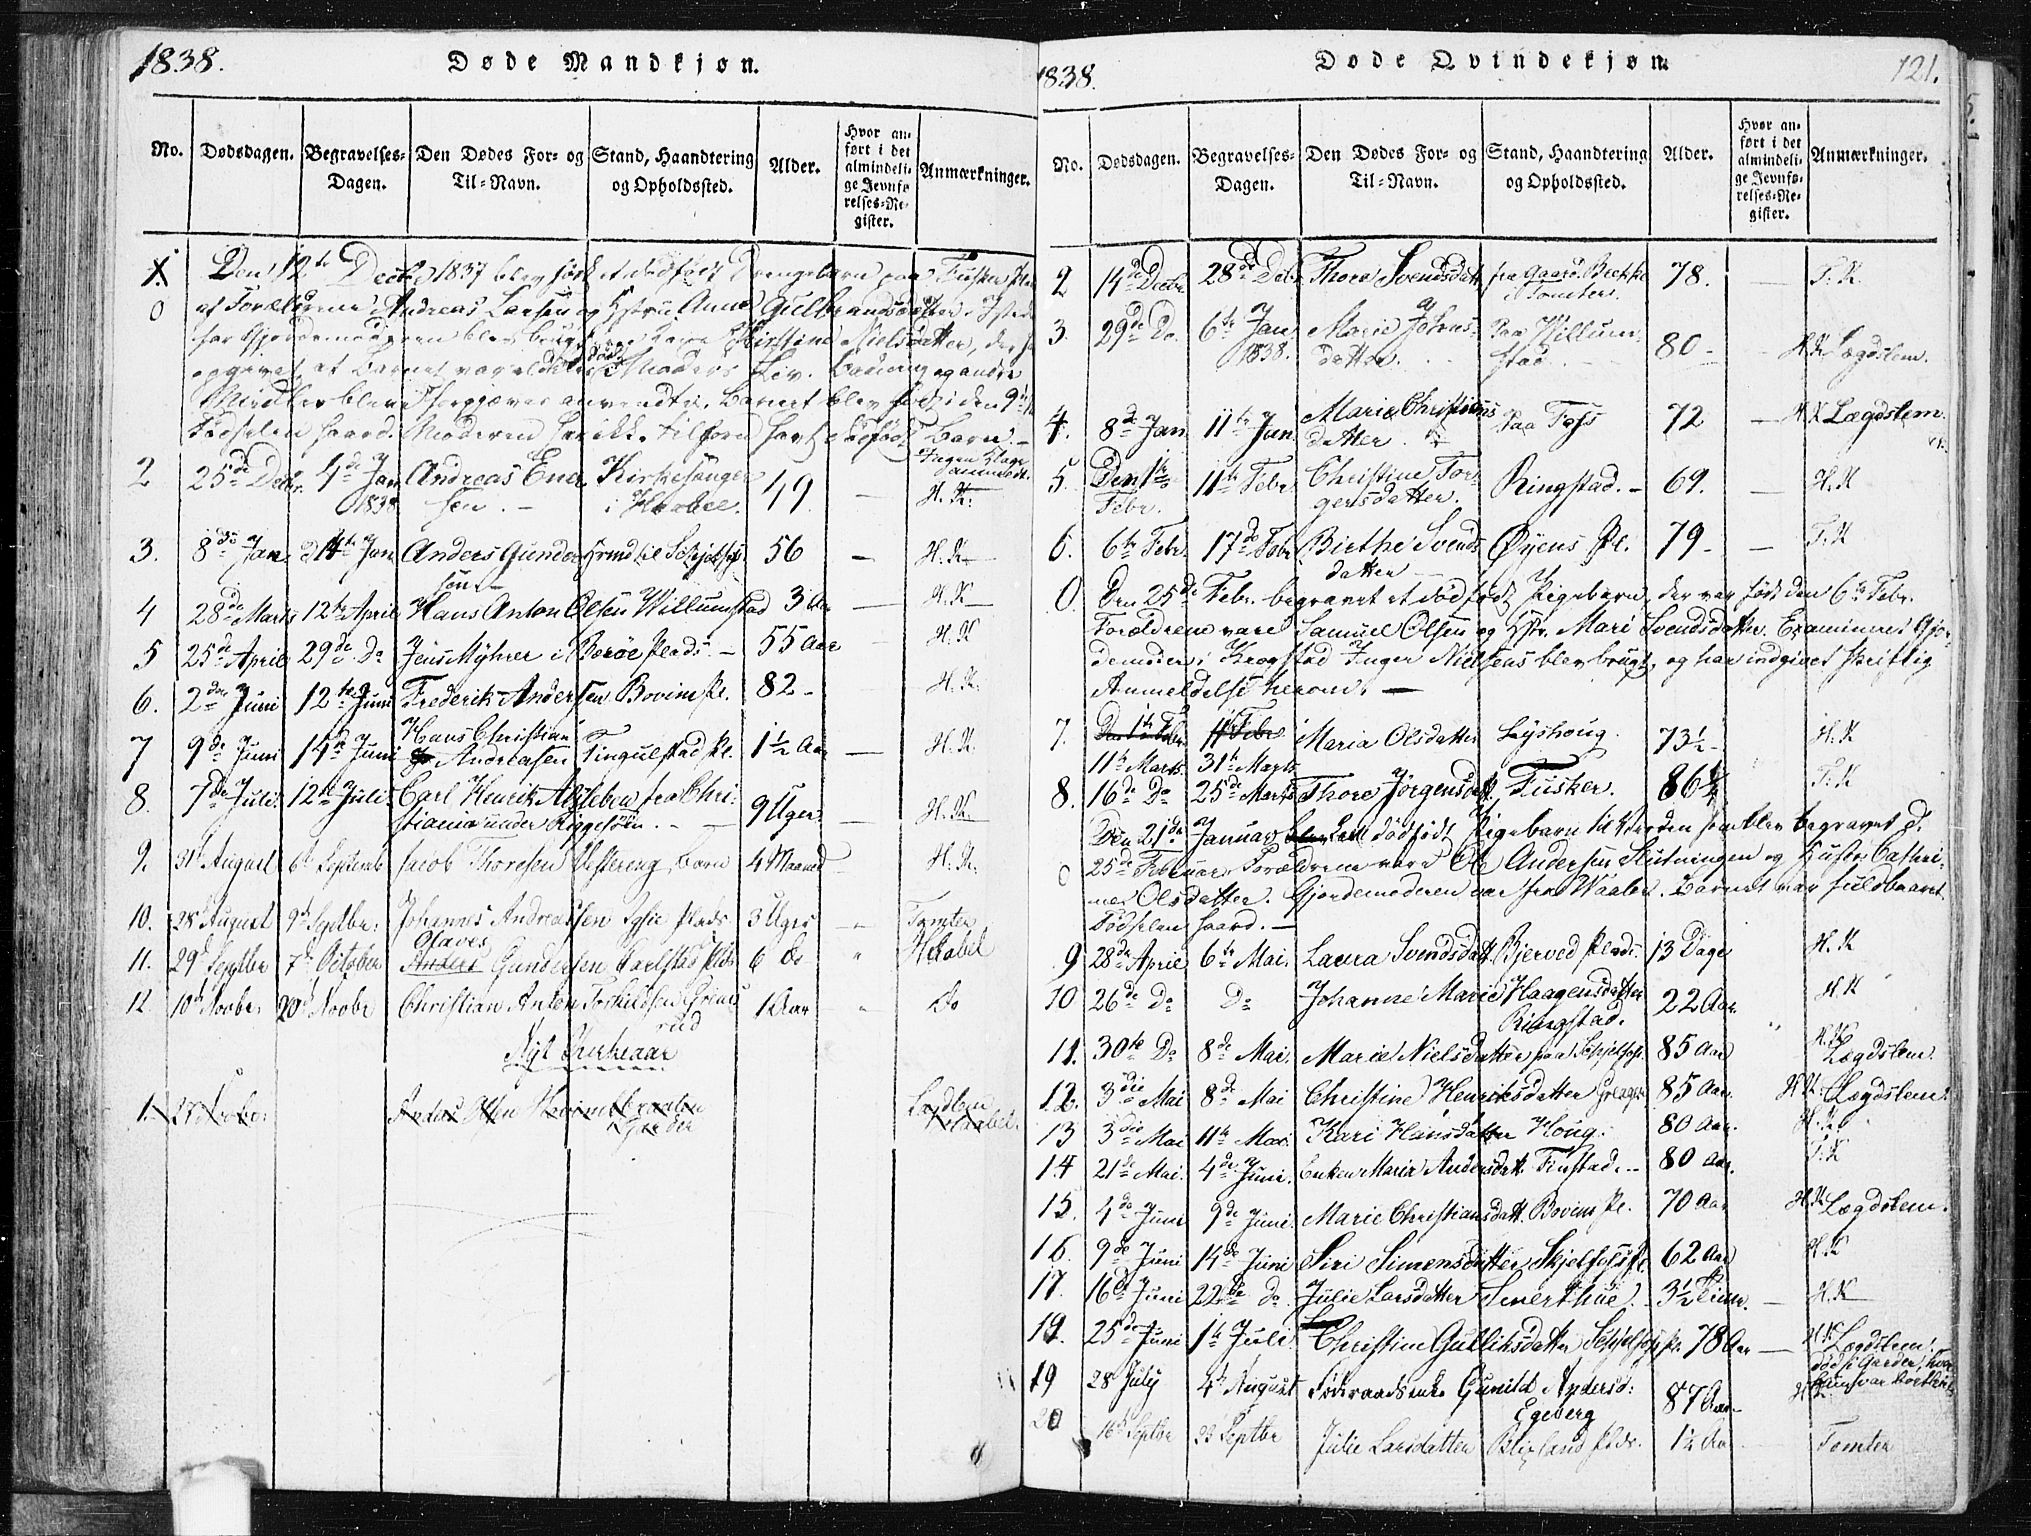 1838.
Døde Mandkjøn.
No. Dødsdagen. Begravelses-Dagen. Den Dødes For- og Til-Navn. Stand, Haandtering og Opholdssted. Alder. Hvor anført i det almindelige Jevnførelses-Register. Anmærkninger.
1. Den 12te Decbr 1837 blev født et dødfødt Drengebarn paa Fusker
0 af Forældrene Andreas Larsen og Hstru Anne Gulbrandsdatter. I stedet
for Gjordemoderen blev brugt Kirstine Nielsdatter, der
opgiver, at Barnet var aldeles dødt i Moders Liv. Badning og andre
Midler bleve forgjæves anvendte. Barnet blev født den 9
Fødselen haard. Moderen har ikke tilforn havt dødfødt Barn. –
Ingen Klage
2 25de Decbr. 4de Jan 1838 Andreas Enersen. – Kirkesanger i Haabel. 49. – H. K.
3. 8de Jan. 14te Jan Anders Gundersøn – Grmd til Skjelfos 56 – H. K.
4 28de Marts 12te April Hans Anton Olsen Willumstad 3 Aar – H. K.
5 25de April 29de Do Jens Myhrer i Borøe Plads. – 55 Aar – H. K.
6. 2den Juni 12te Juni Frederik Andersen Bovim Pl. 82 – H. K.
7 9de Juni 14de Juni Hans Christian Andreasen Tingulstad Pl. 1½ Aar – H. K.
8. 7de Juli 12te Juli Carl Henrik Atzleben fra Christiania under Riggesøen. – 9 Uger. H. K.
9. 31te August 6te Septembr Jacob Thoresen Westereng, Barn 4 Maaned – H. K.
10. 28 August 9de Septbr. Johannes Andreassen Plads 3 Uger " Tomter
11. 29d Septbr 7de October Olaves Anders Gundersen Carlstad Plds 6 Do " Haabel
12 10de Novbr. 20de Novbr Christian Anton Torkildsen Grimsrud 1 Aar " Do
Nyt Kirkeaar
1. 27 Novbr. Olsen
Haabel.
1838.
Døde Qvindekjøn.
121.
No. Dødsdagen. Begravelses-Dagen. Den Dødes For- og Til-Navn. Stand, Haandtering og Opholdssted. Alder. Hvor anført i det almindelige Jevnførelses-Register. Anmærkninger.
2 14de Decbr 28de Dcbr Thore Svendsdatt fra Gaard. Brekke i Tomter. 78. – T. K.
3. 29de Do. 6te Jan 1838. Marie Johnsdatter. Paa Willumstad 80 – – H. K. Lægdslem.
4. 8de Jan 11te Jan Marie Christiansdatter. Paa Foss 72 – H. K Lægdslem.
5. Den 1te Febr. 11te Febr. Christine Torgersdatter. Ringstad. – 69. – H. K
6. 6te Febr 17de Febr Birthe Svendsdatter Øyens Pl. 79 – – T. K
0. Den 25de Febr. begravet et dødfødt Pigebarn, der var født den 6te Febr.
Forældrene vare Samuel Olsen og Hstr. Mari Svendsdatter. Examineret Gjordemoder i Krogstad Inger Nielsens blev brugt, og har indgivet skriftlig
Anmeldelse herom. –
7. Den 1te Febr. 11te Febr 11te Marts. 31te Marts Maria Olsdatter Lyshoug. 73½ – H. K
8. 16de Do 25de Marts Thore Jørgensdatt. Fusker. 86¼ T. K
0 Den 21de Januar et dødfødt Pigebarn til Verden som blev begravet d.
25de Februar. Forældrene vare Ole Andersen Slutningen og Hustru Cathrine Olsdatter. Gjordemoderen var fra Waaler. Barnet var fuldbaaret.
Fødselen haard. –
9 28de April 6te Mai. Laura Svendsdatt. Bjerved Plads. 13 Dage H. K
10 26de Do Do Johanne Marie Haagensdatter Ringstad. 22 Aar. H. K
11. 30te Do 8de Mai. Marie Nielsdatter paa Skjelfos. 85 Aar " H. K. Lægdslem.
12. 3die Mai 8de Mai Christine Henriksdatter Greager 85 Aar. H. K. Lægdslem.
13 3die Mai 11te Mai. Kari Hansdatter Houg. 80 Aar. H. K
14. 21de Mai. 4de Juni. Enken Maria Andersdatt. Finstad. – 80 Aar. T. K
15. 4de Juni 9de Juni. Marie Christiansdatt. Bovim Pl. 70 Aar H. K Lægdslem.
16. 9de Juni 14de Juni Siri Simensdatter Skjelfos Pl. 62 Aar H. K
17. 16de Juni 22de do Julie Larsdatter Smerthue. – 3½ Time. – H. K
18. 25de Juni 1te Juli Christine Gulliksdatter Skjelfos Pl. 78 Aar – H. K Lægdslem. død i Garder, hvor hun var
19 28 July 4de August Føderaadsenke Gunild Andersd: Egeberg 87 Aar – H. K.
20 16de Septbr 23 Septbr Julie Larsdatter Blixland Plds. 1¼ Aar Tomter